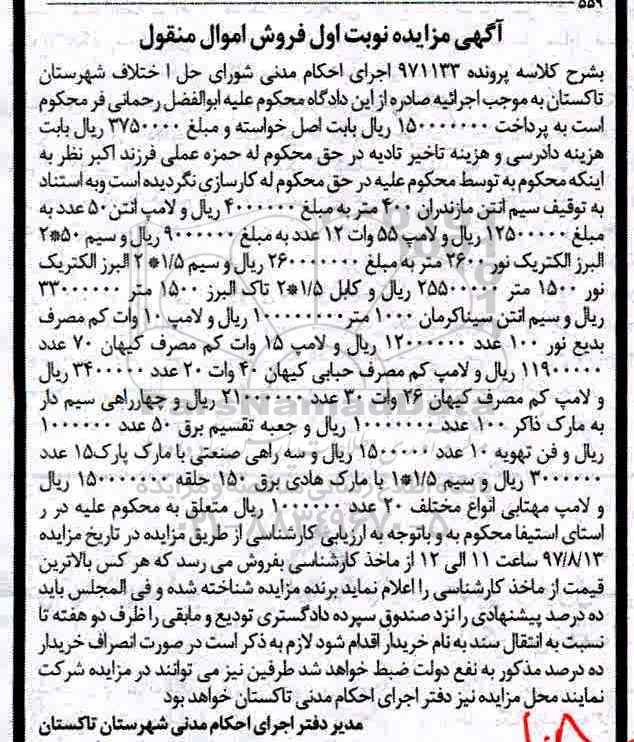 ۵۵۹
آگهی مزایده نوبت اول فروش اموال منقول
بشرح کلاسه پرونده ۹۷۱۱۳۳ اجرای احکام مدنی شورای حل ا ختلاف شهرستان
تاکستان به موجب اجرائیه صادره از این دادگاه محکوم علیه ابوالفضل رحمانی فر محکوم
است به پرداخت ۱۵۰۰۰۰۰۰۰ ریال بابت اصل خواسته و مبلغ ۳۷۵۰۰۰۰ ریال بابت
هزینه دادرسی و هزینه تاخیر تادیه در حق محکوم له حمزه عملی فرزند اکبر نظر به
اینکه محکوم به توسط محکوم علیه در حق محکوم له کارسازی نگردیده است وبه استناد
به توقیف سیم انتن مازندران ۴۰۰ متر به مبلغ ۴۰۰۰۰۰۰ ریال و لامپ انتن ۵۰ عدد به
مبلغ ۱۲۵۰۰۰۰۰ ریال و لامپ ۵۵ وات ۱۲ عدد به مبلغ ۹۰۰۰۰۰۰ ریال و سیم ۵۰*۲
البرز الکتریک نور ۲۶۰۰ متر به مبلغ ۲۶۰۰۰۰۰۰ ریال و سیم ۱/۵* ۲ البرز الکتریک
نور ۱۵۰۰ متر ۲۵۵۰۰۰۰۰ ریال و کابل ۱/۵*۲ تاک البرز ۱۵۰۰ متر ۳۳۰۰۰۰۰۰
ریال و سیم انتن سیناکرمان ۱۰۰۰ متر ۱۰۰۰۰۰۰۰ ریال و لامپ ۱۰ وات کم مصرف
بدیع نور ۱۰۰ عدد ۱۲۰۰۰۰۰۰ ریال و لامپ ۱۵ وات کم مصرف کیهان ۷۰ عدد
۱۱۹۰۰۰۰۰ ریال و لامپ کم مصرف حبابی کیهان ۴۰ وات ۲۰ عدد ۳۴۰۰۰۰۰ ریال
و لامپ کم مصرف کیهان ۲۶ وات ۳۰ عدد ۲۱۰۰۰۰۰۰ ریال و چهارراهی سیم دار
به مارک ذاکر ۱۰۰ عدد ۱۰۰۰۰۰۰۰ ریال و جعبه تقسیم برق ۵۰ عدد ۱۰۰۰۰۰۰
ریال و فن تهویه ۱۰ عدد ۱۵۰۰۰۰۰ ریال و سه راهی صنعتی با مارک پارک۱۵ عدد
۳۰۰۰۰۰۰ ریال و سیم ۱/۵*۱ با مارک هادی برق ۱۵۰ حلقه ۱۵۰۰۰۰۰۰ ریال
و لامپ مهتابی انواع مختلف ۲۰ عدد ۱۰۰۰۰۰۰ ریال متعلق به محکوم علیه در ر
استای استیفا محکوم به و باتوجه به ارزیابی کارشناسی از طریق مزایده در تاریخ مزایده
۹۷/۸/۱۳ ساعت ۱۱ الی ۱۲ از ماخذ کارشناسی بفروش می رسد که هر کس بالاترین
قیمت از ماخذ کارشناسی را اعلام نماید برنده مزایده شناخته شده و فی المجلس باید
ده درصد پیشنهادی را نزد صندوق سپرده دادگستری تودیع و مابقی را ظرف دو هفته تا
نسبت به انتقال سند به نام خریدار اقدام شود لازم به ذکر است در صورت انصراف خریدار
ده درصد مذکور به نفع دولت ضبط خواهد شد طرفین نیز می توانند در مزایده شرکت
نمایند محل مزایده نیز دفتر اجرای احکام مدنی تاکستان خواهد بود
مدیر دفتر اجرای احکام مدنی شهرستان تاکستان